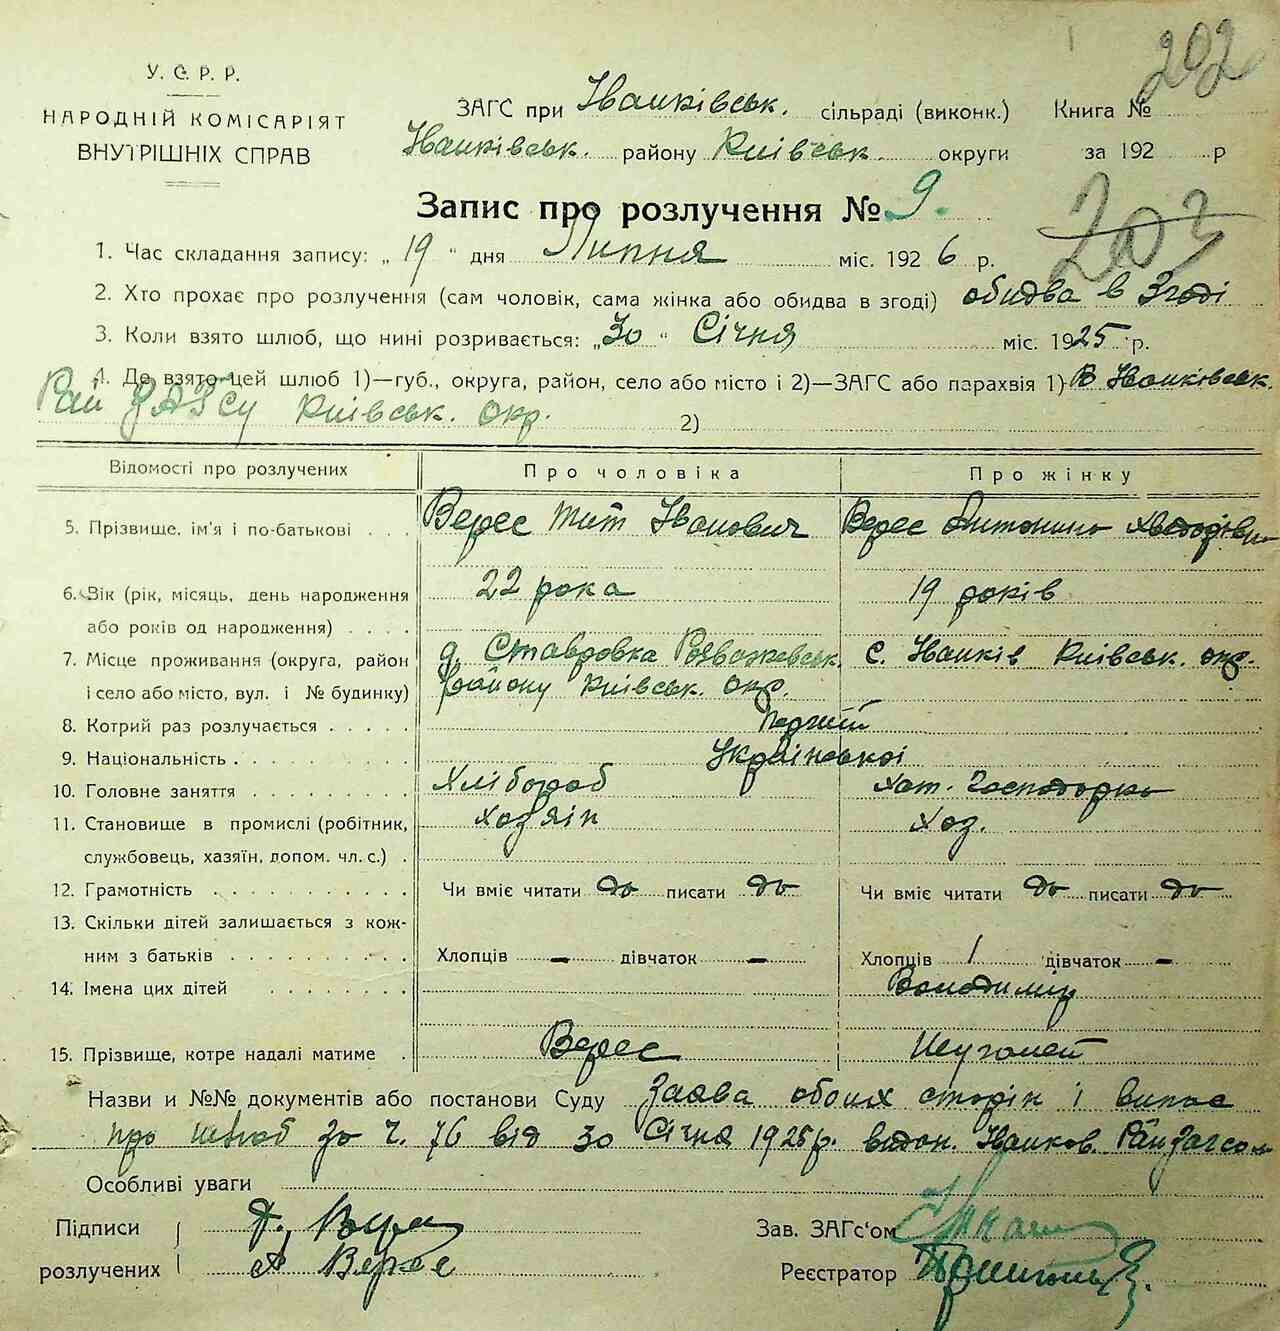 202
У. С. Р. Р.
НАРОДНІЙ КОМІСАРІЯТ
ВНУТРІШНІХ СПРАВ
ЗАГС при Іванківськ. сільраді (виконк.) Книга №
Іванківськ. району Київськ. округи за 192 р
Запис про розлучення № 9.
203
1. Час складання запису: „ 19 “ дня Липня міс. 192 6 р.
2. Хто прохає про розлучення (сам чоловік, сама жінка або обидва в згоді) обидва в Згоді
3. Коли взято шлюб, що нині розривається: „ 30 “ Січня міс. 1925 р.
4. Де взято цей шлюб 1)—губ., округа, район, село або місто і 2)—ЗАГС або парахвія 1) В Іванківськ.
Рай ЗАГСу Київськ. Окр. 2)
Відомості про розлучених Про чоловіка Про жінку
5. Прізвище, ім'я і по-батькові . . . Верес Тит Іванович Верес Антонина Хведорівна
6. Вік (рік, місяць, день народження 22 рока 19 років
або років од народження) . . . .
7. Місце проживання (округа, район д. Ставровка Розважевськ. с. Іванків Київськ. окр.
і село або місто, вул. і № будинку) району Київськ. Окр.
8. Котрий раз розлучається . . . . . Перший
9. Національність . . . . . . . . . Української
10. Головне заняття . . . . . . . . . Хлібороб Хат. Господарка
11. Становище в промислі (робітник, Хозяін Хоз.
службовець, хазяїн, допом. чл. с.) .
12. Грамотність . . . . . . . . . . . Чи вміє читати да писати да Чи вміє читати да писати да
13. Скільки дітей залишається з кож-
ним з батьків . . . . . . . . . . Хлопців - дівчаток - Хлопців 1 дівчаток -
14. Імена цих дітей . . . . . . . . Володимір
15. Прізвище, котре надалі матиме . Верес
Назви и №№ документів або постанови Суду Заява обоих сторін і випис
про шлюб за ч. 76 від 30 Січня 1925 р. видан. Іванков. РайЗагсом
Особливі уваги
Підписи Т. Верес Зав. ЗАГс'ом
розлучених А Верес Реєстратор